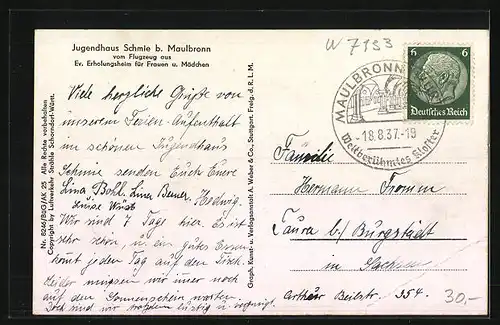 Jugendhaus Schmie b. Maulbronn
vom Flugzeug aus
Ev. Erholungsheim für Frauen u. Mädchen
W 7193
6 6
Deutsches Reich
MAULBRONN
-18.8.37.-19
Weltberühmtes Kloster
Viele herzliche Grüße von
unserem Ferien-Aufenthalt
im schönen Jugendhaus
Schmie senden Euch Eure
Lina Lina Hedwig.
Luise
Wir sind 7 Tage hier. Es ist
sehr schön, u. ein gutes Essen
kommt jeden Tag auf den Tisch.
Leider müssen wir immer noch
auf den Sonnenschein warten.
Doch sind wir trotzdem lustig u. vergnügt.
Nr. 6246/BIG/AK 25 Alle Rechte vorbehalten
Copyright by Luftverkehr Strähle Schorndorf-Württ.
Graph. Kunst- u. Verlagsanstalt A. Weber & Co., Stuttgart. Freig. d. R. L. M.
Familie
Hermann Fromm
Taura b/ Burgstädt
in Sachsen
Arthur Beilstr. 354.
30.-